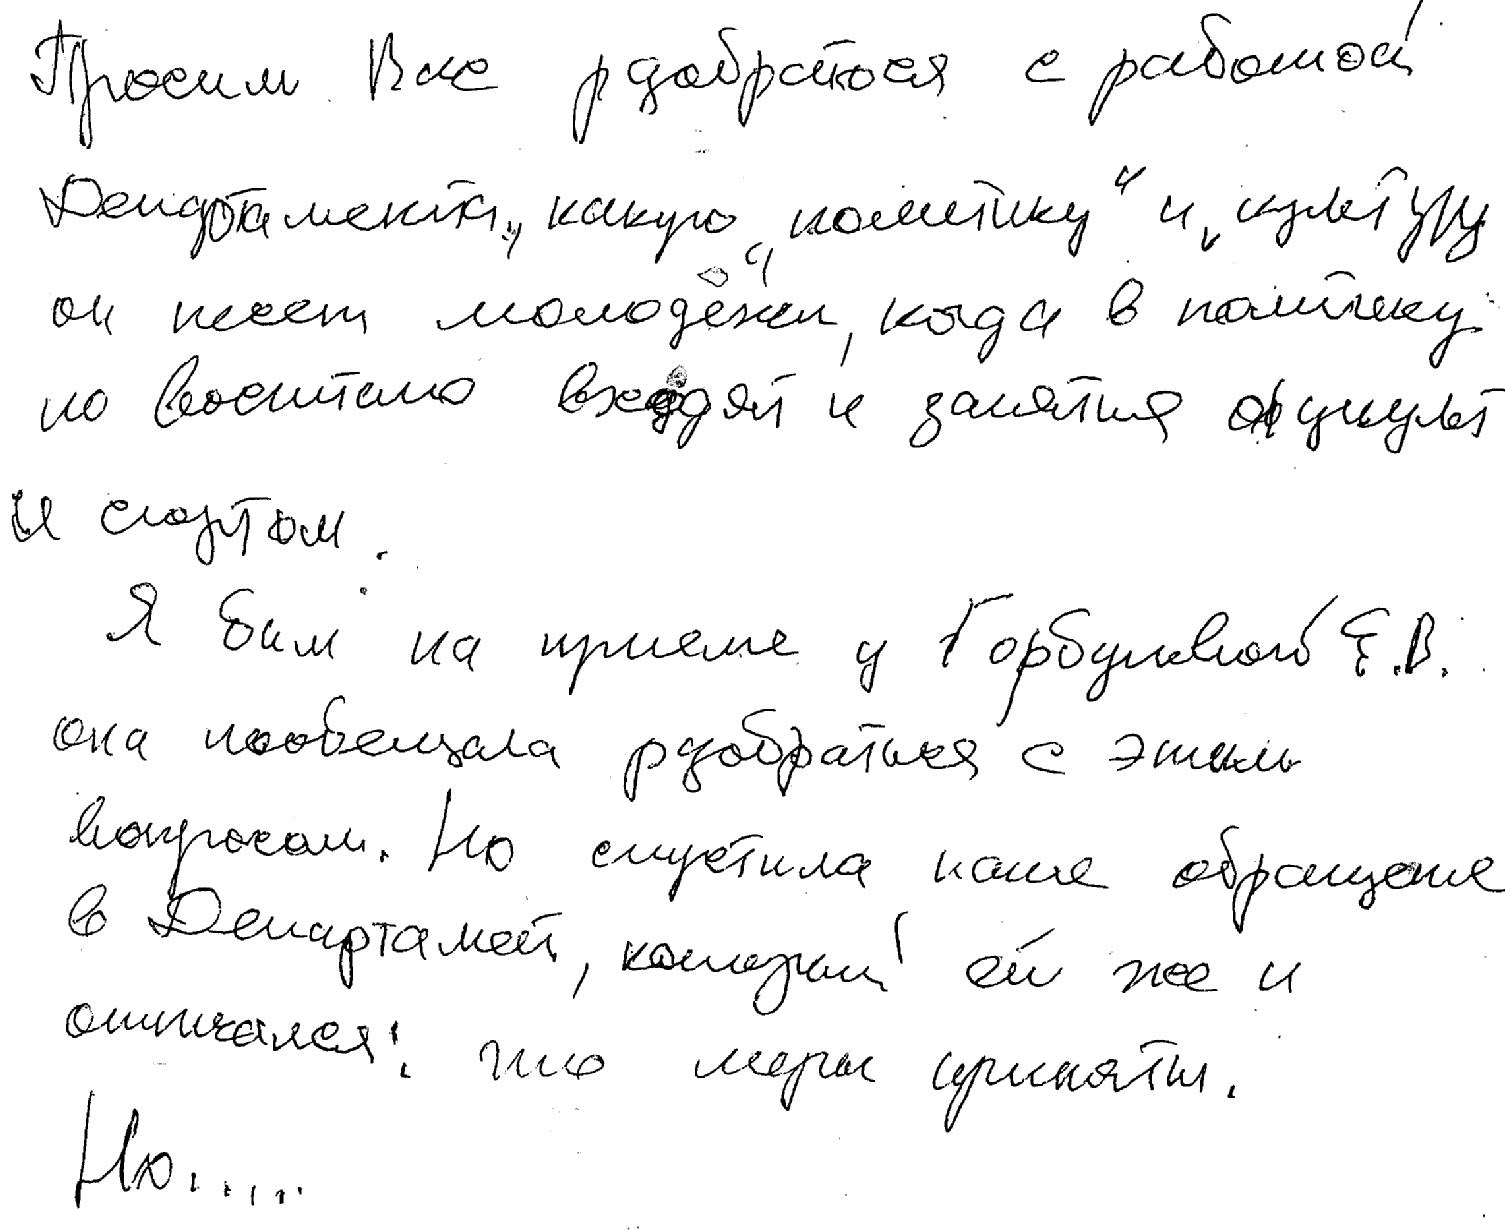 Просим Вас рдобраться с работой
Департамента, какую „политику“ и „культуру
он несет молодёжи, когда в политику
по воспитанию входят и занятия физкульт
и спортом.
Я был на приеме у Горбуновой Е.В.
она пообещала рдобраться с этим
вопросом. Но спустила наше обращение
в Департамент, который ей же и
отписался: что меры приняты.
Но.....